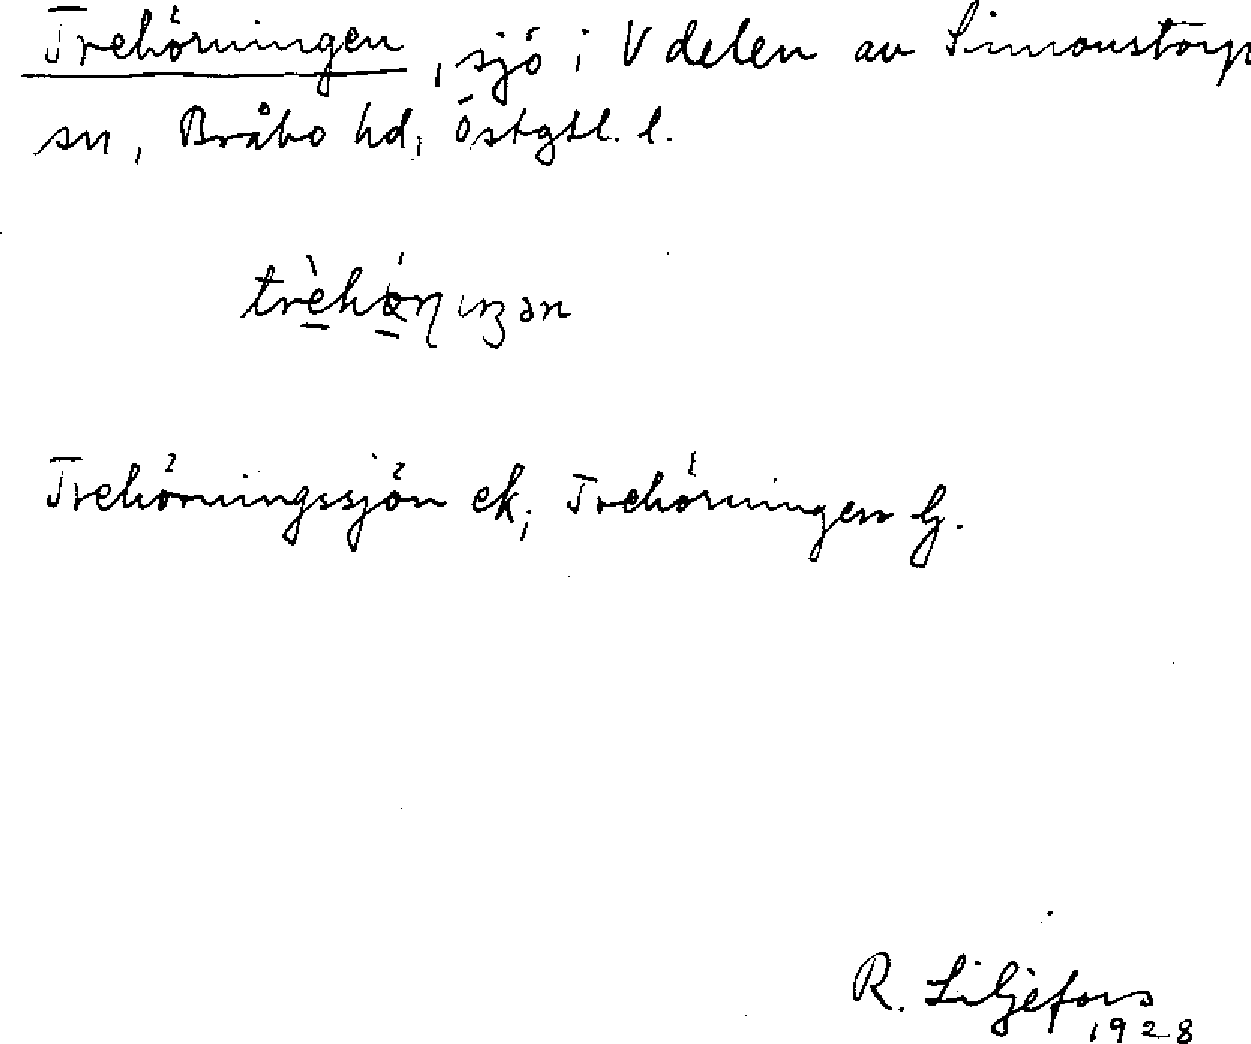 Trehörningen, sjö i V delen av Simonstorp
sn, Bråbo hd, Östgtl. l.
Trehörningssjön ek; Trehörningen
R. Liljefors
1928